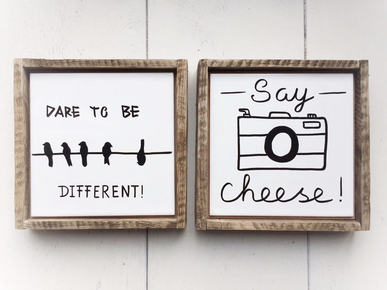 DARE TO BE
DIFFERENT!
Say
cheese!